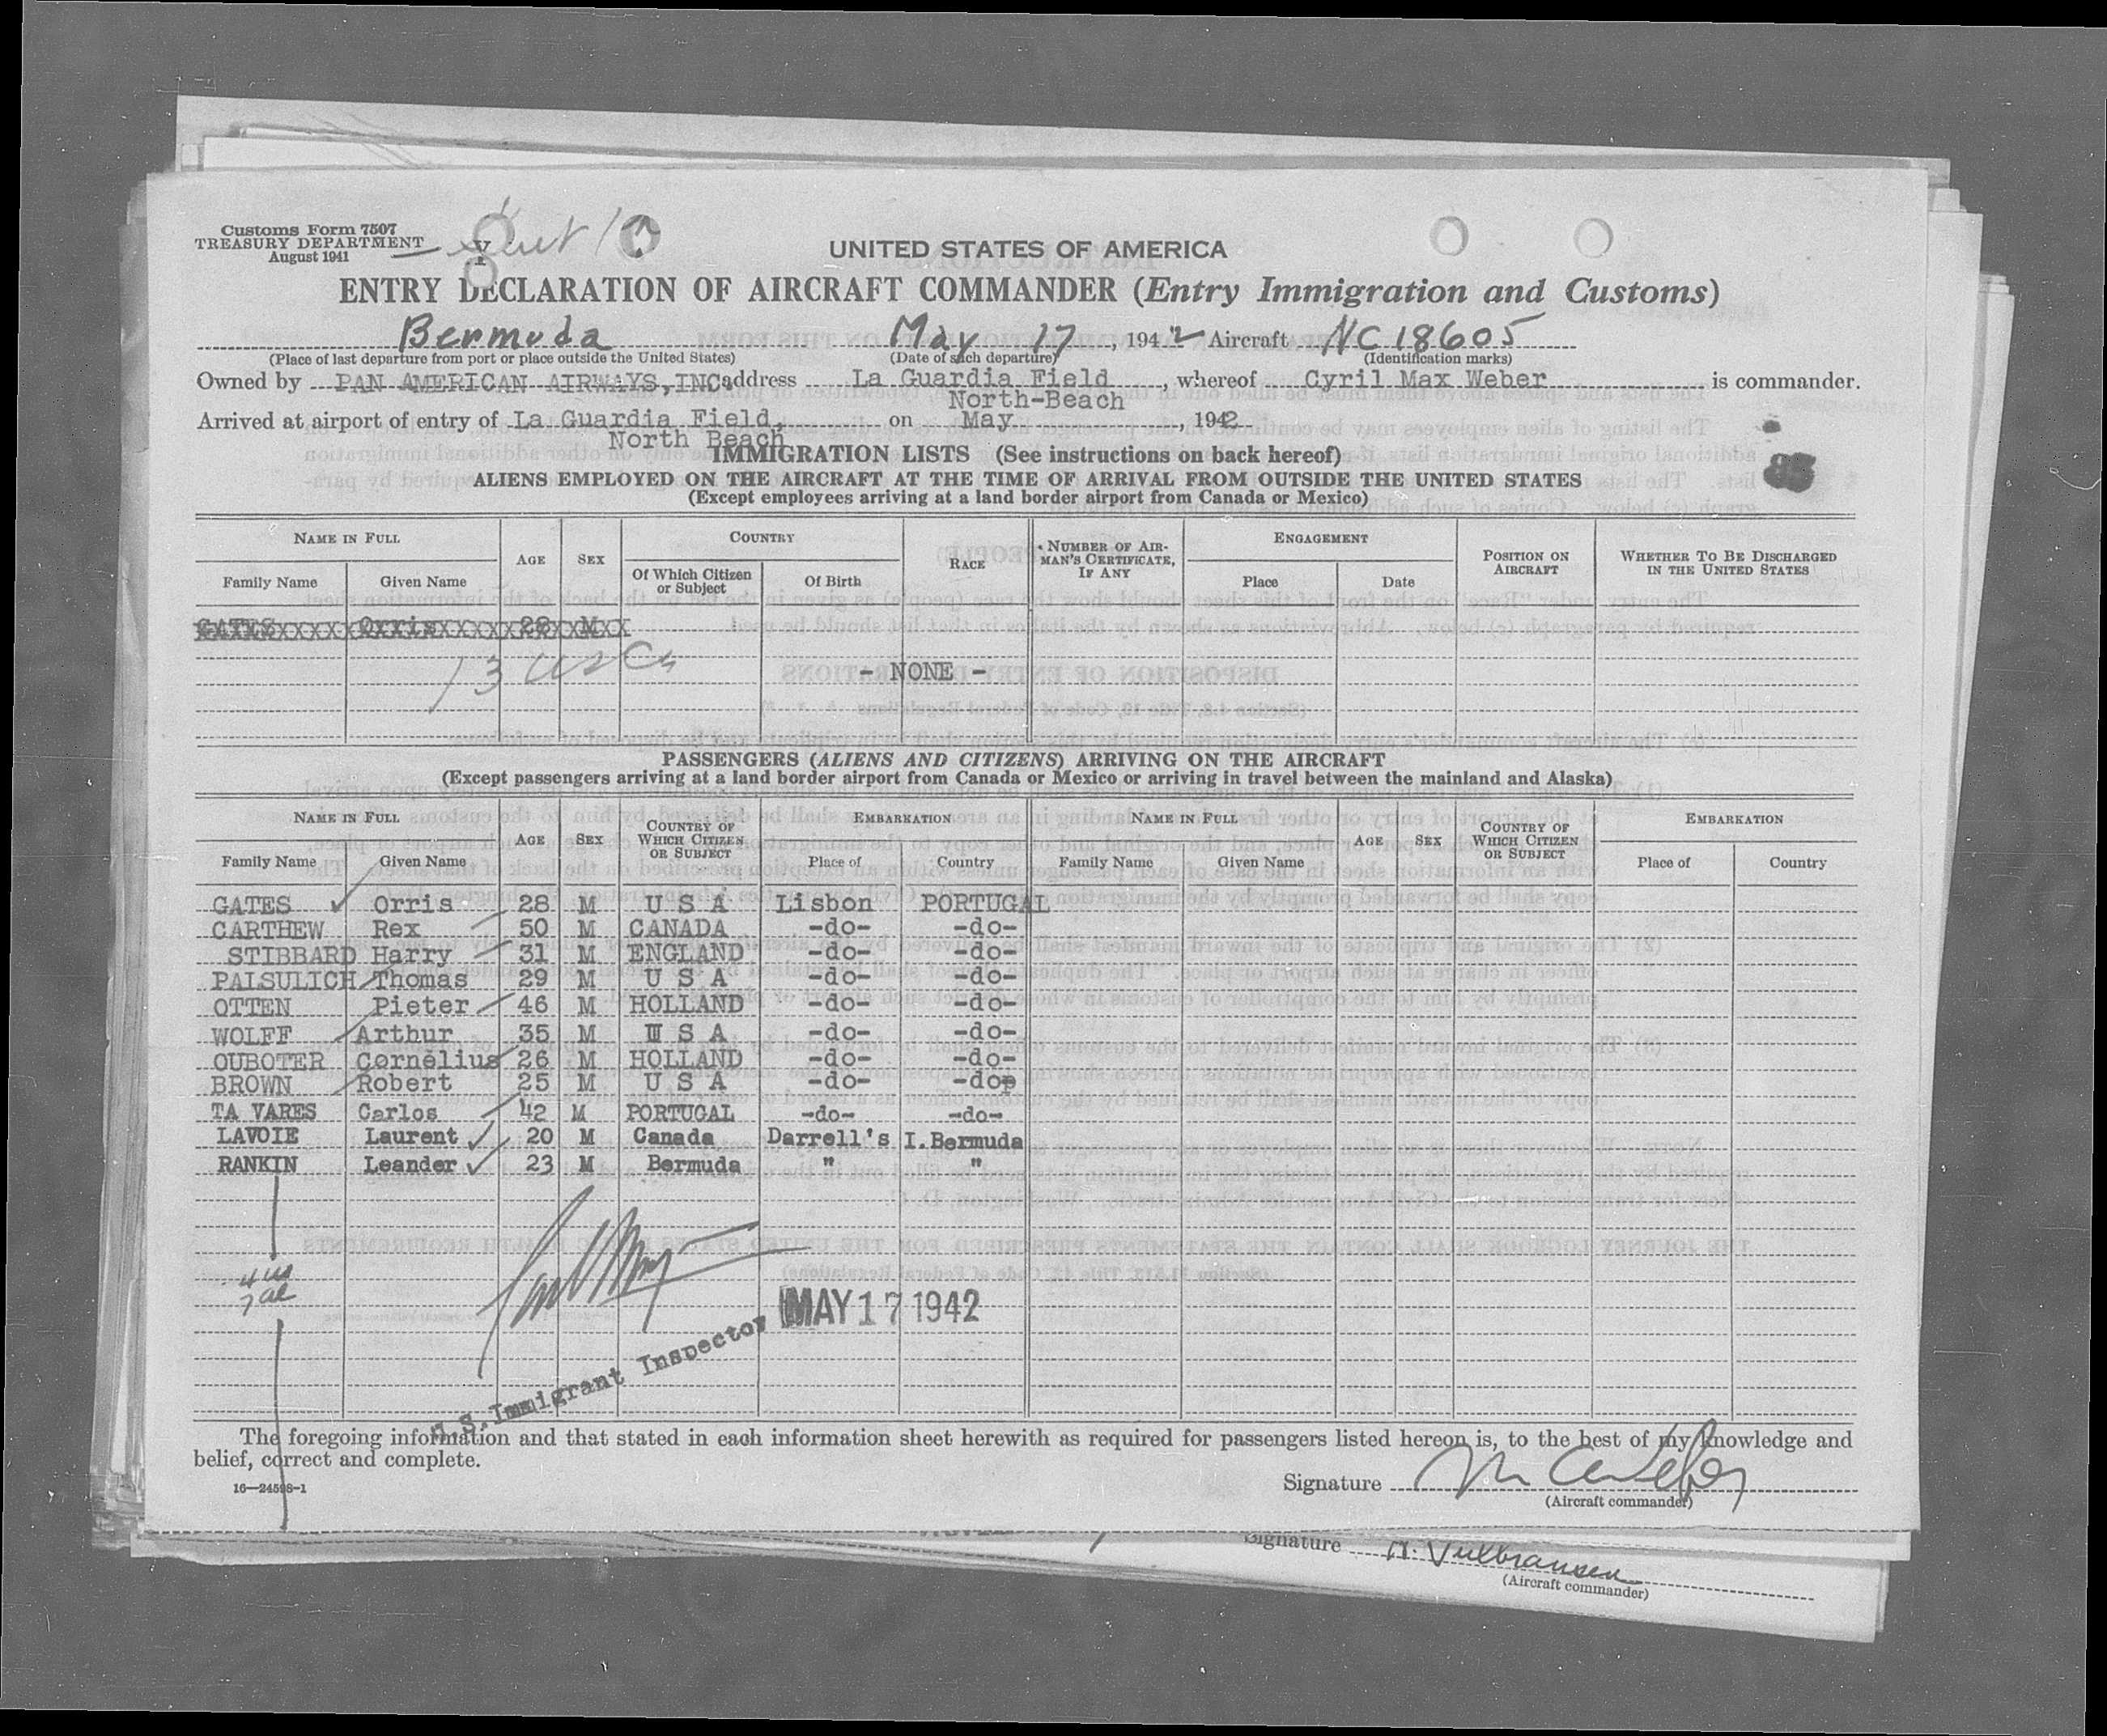 Customs Form 7507
TREASURY DEPARTMENT
August 1941
UNITED STATES OF AMERICA
ENTRY DECLARATION OF AIRCRAFT COMMANDER (Entry Immigration and Customs)
Bermuda May 17, 1942 Aircraft NC18605
(Place of last departure from port or place outside the United States) (Date of such departure) (Identification marks)
Owned by PAN AMERICAN AIRWAYS, INC. address La Guardia Field, whereof Cyril Max Weber is commander.
North-Beach
Arrived at airport of entry of La Guardia Field, on May, 1942
North Beach
IMMIGRATION LISTS (See instructions on back hereof)
ALIENS EMPLOYED ON THE AIRCRAFT AT THE TIME OF ARRIVAL FROM OUTSIDE THE UNITED STATES
(Except employees arriving at a land border airport from Canada or Mexico)
NAME IN FULL AGE SEX COUNTRY RACE NUMBER OF AIRMAN'S CERTIFICATE, IF ANY ENGAGEMENT POSITION ON AIRCRAFT WHETHER TO BE DISCHARGED IN THE UNITED STATES
Family Name Given Name Of Which Citizen or Subject Of Birth Place Date
GATES Orris 28 M
13 USCs
- NONE -
PASSENGERS (ALIENS AND CITIZENS) ARRIVING ON THE AIRCRAFT
(Except passengers arriving at a land border airport from Canada or Mexico or arriving in travel between the mainland and Alaska)
NAME IN FULL AGE SEX COUNTRY OF WHICH CITIZEN OR SUBJECT EMBARKATION NAME IN FULL AGE SEX COUNTRY OF WHICH CITIZEN OR SUBJECT EMBARKATION
Family Name Given Name Place of Country Family Name Given Name Place of Country
GATES Orris 28 M U S A Lisbon PORTUGAL
CARTHEW Rex 50 M CANADA -do- -do-
STIBBARD Harry 31 M ENGLAND -do- -do-
PALSULICH Thomas 29 M U S A -do- -do-
OTTEN Pieter 46 M HOLLAND -do- -do-
WOLFF Arthur 35 M U S A -do- -do-
OUBOTER Cornelius 26 M HOLLAND -do- -do-
BROWN Robert 25 M U S A -do- -do-
TA VARES Carlos 42 M PORTUGAL -do- -do-
LAVOIE Laurent 20 M Canada Darrell's I. Bermuda
RANKIN Leander 23 M Bermuda " "
4 us
7 al
MAY 17 1942
U.S. Immigrant Inspector
The foregoing information and that stated in each information sheet herewith as required for passengers listed hereon is, to the best of my knowledge and
belief, correct and complete.
16—24598-1
Signature M C Weber
(Aircraft commander)
Signature
(Aircraft commander)